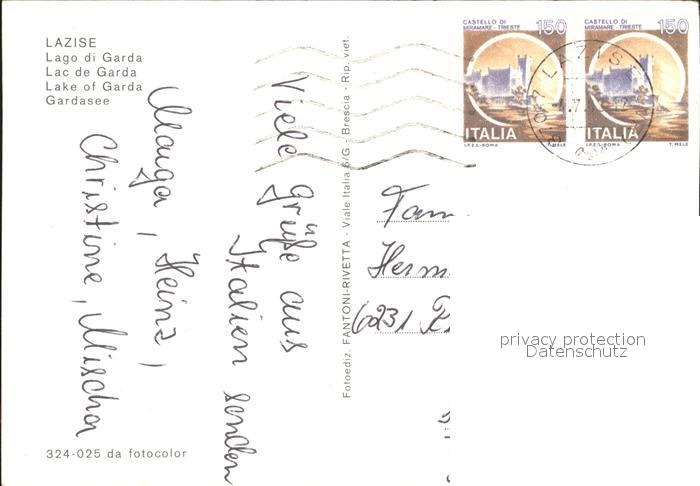 LAZISE
Lago di Garda
Lac de Garda
Lake of Garda
Gardasee
Viele Grüße aus
Italien senden
Heinz,
Christine, Mischa
324-025 da fotocolor
Fotoediz. FANTONI-RIVETTA - Viale Italia 6/G - Brescia - Rip. viet.
CASTELLO DI
MIRAMARE - TRIESTE
150
ITALIA
I.P.Z.S.-ROMA T. MELE
CASTELLO DI
MIRAMARE - TRIESTE
150
ITALIA
I.P.Z.S.-ROMA T. MELE
LAZISE
Fam
Herm
6231
privacy protection
Datenschutz